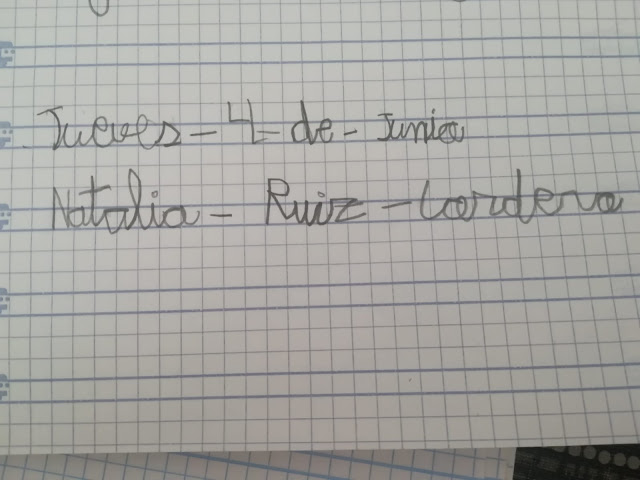 Jueves - 4 - de - Junio
Natalia - Ruiz - Cordero